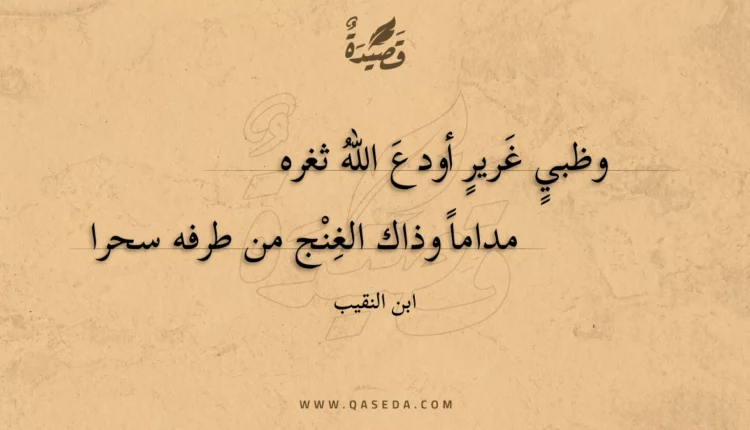 قَصِيدَةٌ
وظبيٍ غَريرٍ أودعَ اللهُ ثغره
مداماً وذاك الغِنْج من طرفه سحرا
ابن النقيب
WWW.QASEDA.COM